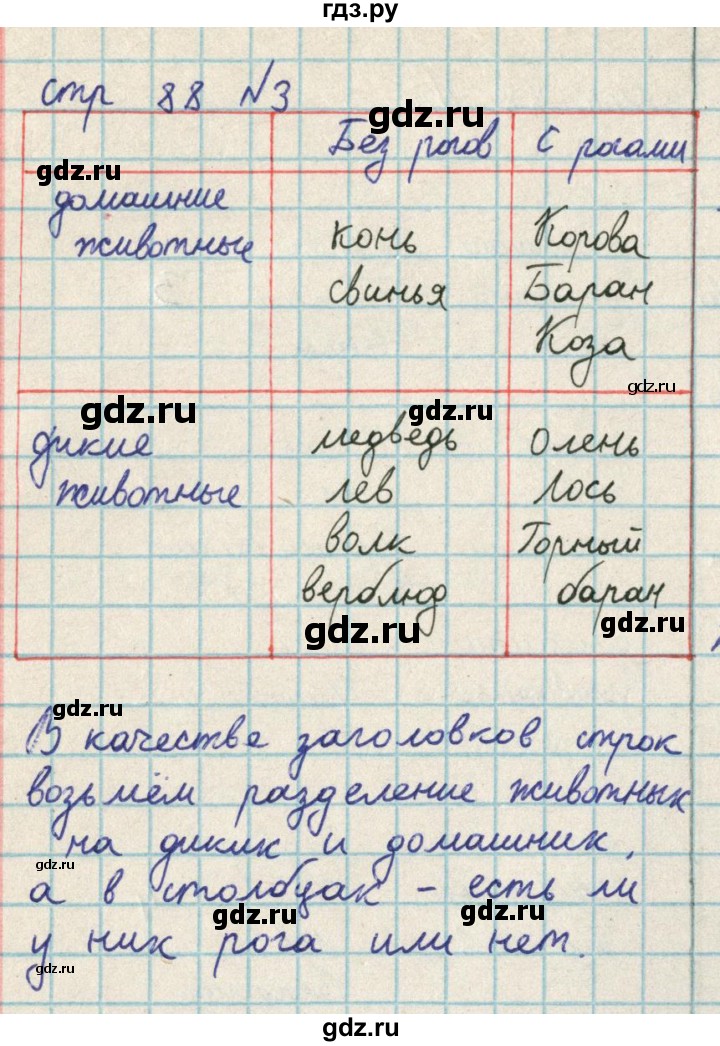 гдз.ру
стр 88 №3
Без рогов С рогами
gdz.ru
gdz.ru
домашние
животные
конь Корова
свинья Баран
Коза
gdz.ru
gdz.ru
gdz.ru
дикие
животные
медведь Олень
лев Лось
волк Горный
верблюд баран
gdz.ru
gdz.ru
gdz.ru
В качестве заголовков строк
возьмём разделение животных
на диких и домашних,
gdz.ru
а в столбцах – есть ли
gdz.ru
gdz.ru
у них рога или нет.
gdz.ru
gdz.ru